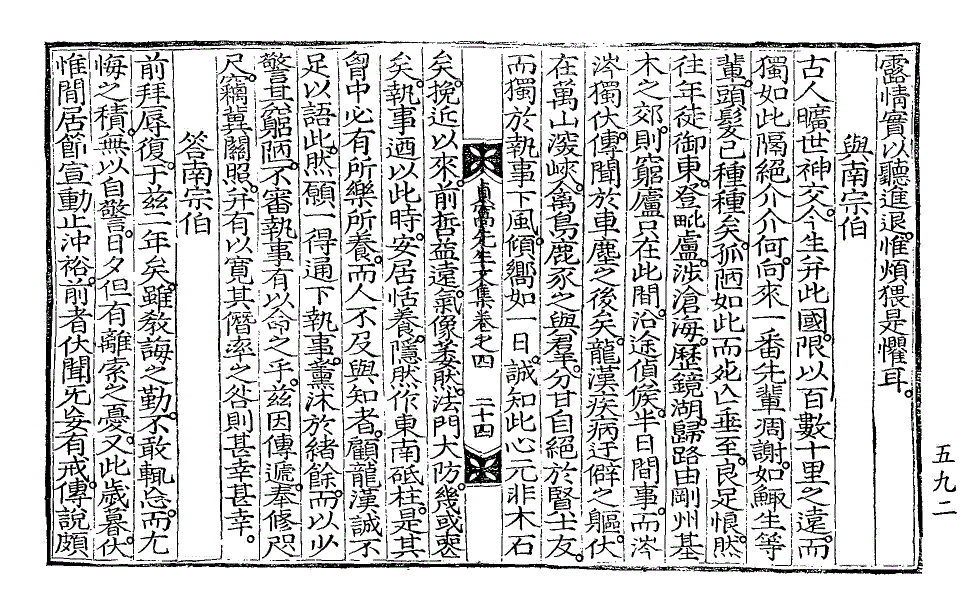 露情實以聽進退。惟煩猥是懼耳。
與南宗伯
古人曠世神交。今生并此國。限以百數十里之遠。而
獨如此隔絕介介何。向來一番先輩凋謝。如鯫生等
輩。頭髮已種種矣。孤陋如此而死以垂至。良足恨。然
往年徒御東。登毗盧。涉滄海。歷鏡湖。歸路由剛州基
木之郊。則窮廬只在此間。沿途偵候。半日間事。而涔
涔獨伏。傳聞於車塵之後矣。龍漢疾病迂僻之軀。伏
在萬山深峽。禽鳥鹿豕之與羣。分甘自絕於賢士友。
而獨於執事下風。傾嚮如一日。誠知此心元非木石
貞窩先生文集卷之四 二十四
矣。挽近以來。前哲益遠。氣像萎然。法門大防。幾或要
矣。執事迺以此時。安居恬養。隱然作東南砥柱。是其
胷中必有所樂所養。而人不及與知者。顧龍漢誠不
足以語此。然願一得通下執事。薰沐於緖餘。而以少
警其窮陋。不審執事有以命之乎。玆因傳遞。奉修咫
尺。竊冀關照。幷有以寬其僭率之咎則甚幸甚幸。
答南宗伯
前拜辱復。于玆二年矣。雖敎誨之勤。不敢輒忘。而尤
悔之積。無以自警。日夕但有離索之憂。又此歲暮。伏
惟閒居節宣動止沖裕。前者伏聞无妄有戒。傳說頗
五九二